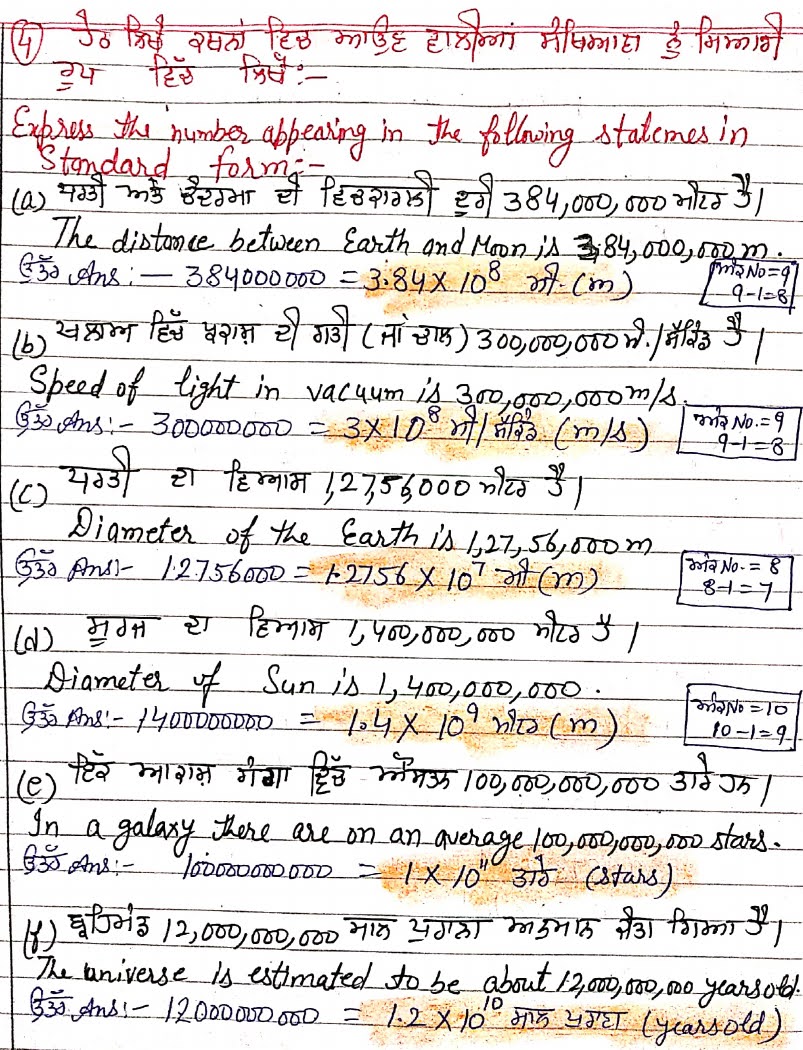 (4) ਹੇਠ ਲਿਖੇ ਕਥਨਾਂ ਵਿਚ ਆਉਣ ਵਾਲੀਆਂ ਸੰਖਿਆਵਾਂ ਨੂੰ ਮਿਆਰੀ
ਰੂਪ ਵਿੱਚ ਲਿਖੋ:-
Express the number appearing in the following statemes in
Standard form:-
(a) ਧਰਤੀ ਅਤੇ ਚੰਦਰਮਾ ਦੀ ਵਿਚਕਾਰਲੀ ਦੂਰੀ 384,000,000 ਮੀਟਰ ਹੈ।
The distance between Earth and Moon is 384,000,000 m.
ਉੱਤਰ Ans:- 384000000 = 3.84 X 10⁸ ਮੀ. (m)
ਅੰਕ No = 9
9-1=8
(b) ਖਲਾਅ ਵਿੱਚ ਪ੍ਰਕਾਸ਼ ਦੀ ਗਤੀ (ਜਾਂ ਚਾਲ) 300,000,000 ਮੀ./ਸੈਕਿੰਡ ਹੈ।
Speed of light in vacuum is 300,000,000 m/s.
ਉੱਤਰ Ans:- 300000000 = 3 X 10⁸ ਮੀ/ਸੈਕਿੰਡ (m/s)
ਅੰਕ No. = 9
9-1=8
(c) ਧਰਤੀ ਦਾ ਵਿਆਸ 1,27,56,000 ਮੀਟਰ ਹੈ।
Diameter of the Earth is 1,27,56,000 m
ਉੱਤਰ Ans:- 12756000 = 1.2756 X 10⁷ ਮੀ (m)
ਅੰਕ No. = 8
8-1=7
(d) ਸੂਰਜ ਦਾ ਵਿਆਸ 1,400,000,000 ਮੀਟਰ ਹੈ।
Diameter of Sun is 1,400,000,000.
ਉੱਤਰ Ans:- 1400000000 = 1.4 X 10⁹ ਮੀਟਰ (m)
ਅੰਕ No = 10
10-1=9
(e) ਇੱਕ ਆਕਾਸ਼ ਗੰਗਾ ਵਿੱਚ ਔਸਤਨ 100,000,000,000 ਤਾਰੇ ਹਨ।
In a galaxy there are on an average 100,000,000,000 stars.
ਉੱਤਰ Ans:- 100000000000 = 1 X 10¹¹ ਤਾਰੇ (stars)
(f) ਬ੍ਰਹਿਮੰਡ 12,000,000,000 ਸਾਲ ਪੁਰਾਣਾ ਅਨੁਮਾਨ ਕੀਤਾ ਗਿਆ ਹੈ।
The universe is estimated to be about 12,000,000,000 years old.
ਉੱਤਰ Ans:- 12000000000 = 1.2 X 10¹⁰ ਸਾਲ ਪੁਰਾਣਾ (years old)